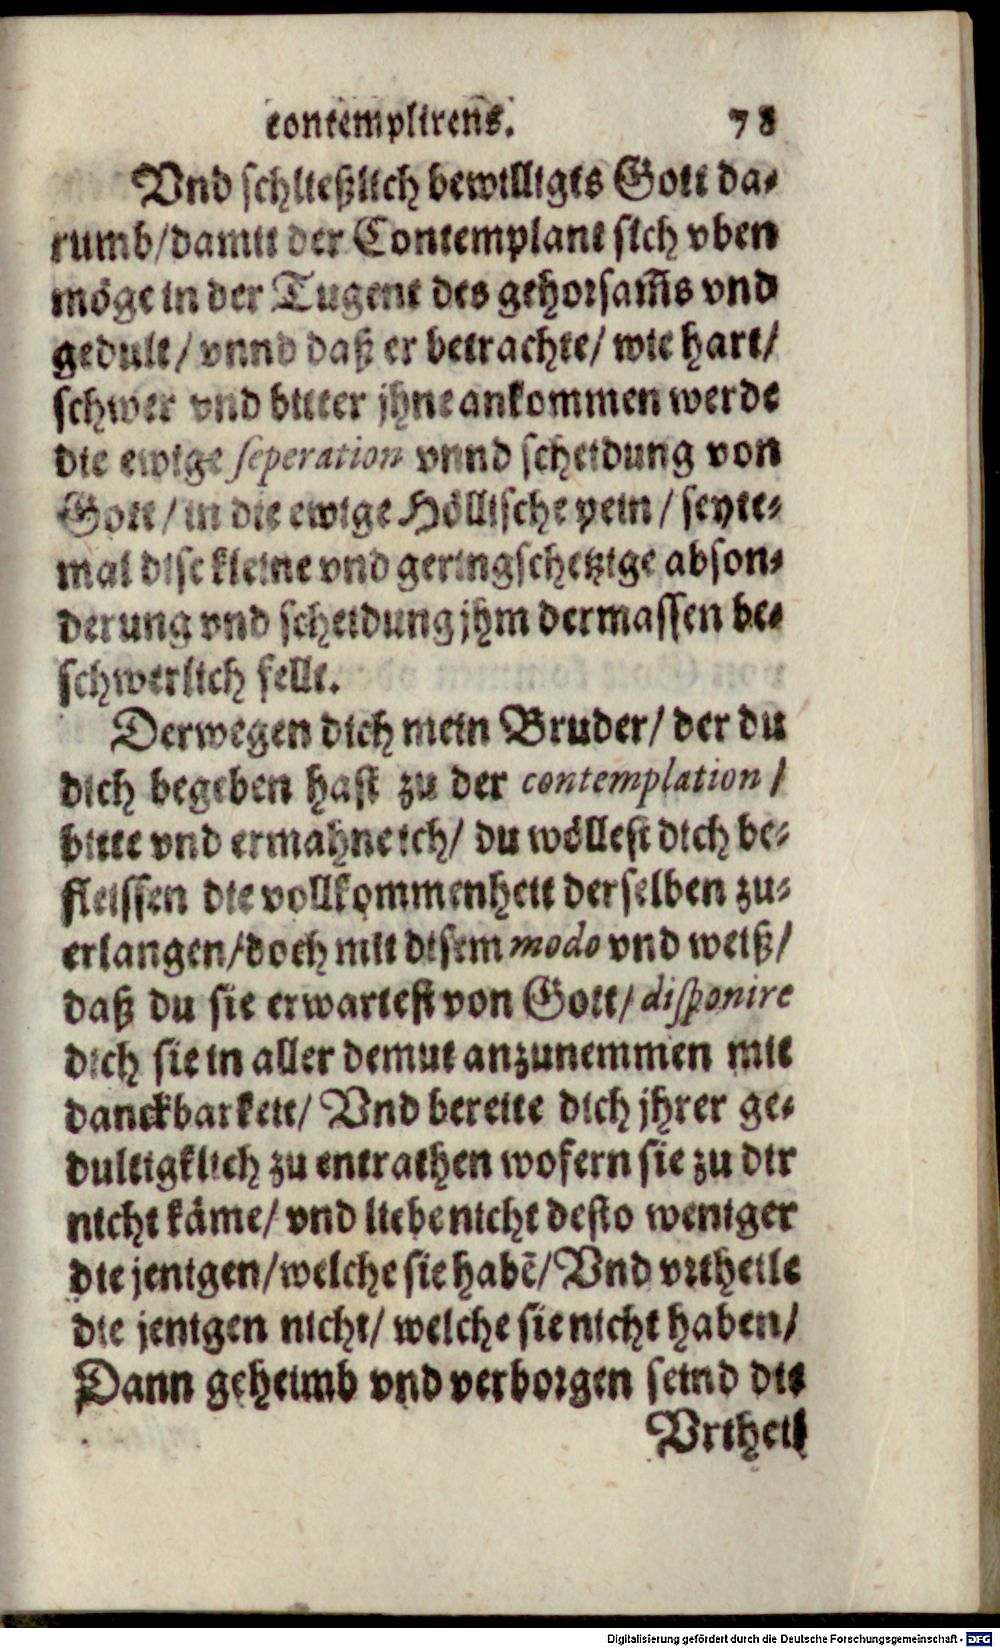 contemplirens. 78
Vnd schließlich bewilligts Gott da-
rumb/damit der Contemplant sich vben
möge in der Tugent des gehorsam̃s vnd
gedult/ vnnd daß er betrachte/ wie hart/
schwer vnd bitter jhne ankommen werde
die ewige seperation vnnd scheidung von
Gott/ in die ewige Höllische pein/ seyte-
mal dise kleine vnd geringschetzige abson-
derung vnd scheidung jhm dermassen be-
schwerlich fellt.
Derwegen dich mein Bruder/ der du
dich begeben hast zu der contemplation/
bitte vnd ermahne ich/ du wöllest dich be-
fleissen die vollkommenheit derselben zu-
erlangen/doch mit disem modo vnd weiß/
daß du sie erwartest von Gott/ disponire
dich sie in aller demut anzunemmen mit
danckbarkeit/ Vnd bereite dich jhrer ge-
dultigklich zu entrathen wofern sie zu dir
nicht käme/ vnd liebe nicht desto weniger
die jenigen/welche sie habẽ/ Vnd vrtheile
die jenigen nicht/ welche sie nicht haben/
Dann geheimb vnd verborgen seind die
Vrtheil
Digitalisierung gefördert durch die Deutsche Forschungsgemeinschaft - DFG